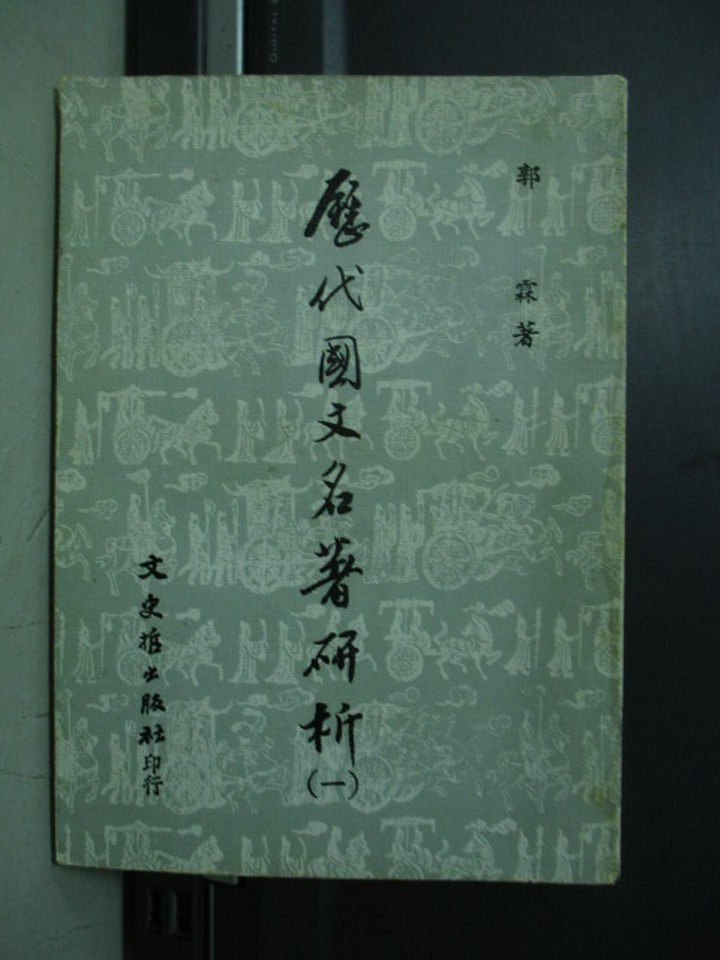 郭霖著
歷代國文名著研析(一)
文史哲出版社印行